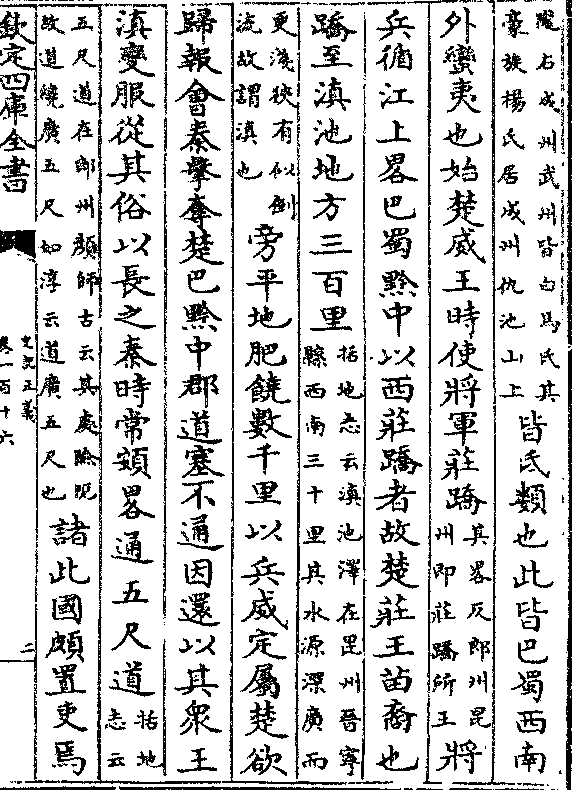 隴右成州武州皆白馬氐其
豪族楊氏居成州仇池山上
皆氐類也此皆巴蜀西南
外蠻夷也始楚威王時使將軍莊蹻
其畧反郎州昆
州即莊蹻所王
將
兵循江上畧巴蜀黔中以西莊蹻者故楚莊王苗裔也
蹻至滇池地方三百里
括地志云滇池澤在昆州晉寧
縣西南三十里其水源深廣而
更淺狹有似倒
流故謂滇也
旁平地肥饒數千里以兵威定屬楚欲
歸報會秦擊奪楚巴黔中郡道塞不通因還以其衆王
滇變服從其俗以長之秦時常頞畧通五尺道
括地
志云
五尺道在郎州顏師古云其處險阨
故道纔廣五尺如淳云道廣五尺也
諸此國頗置吏焉
欽定四庫全書
史記正義
卷一百十六
二